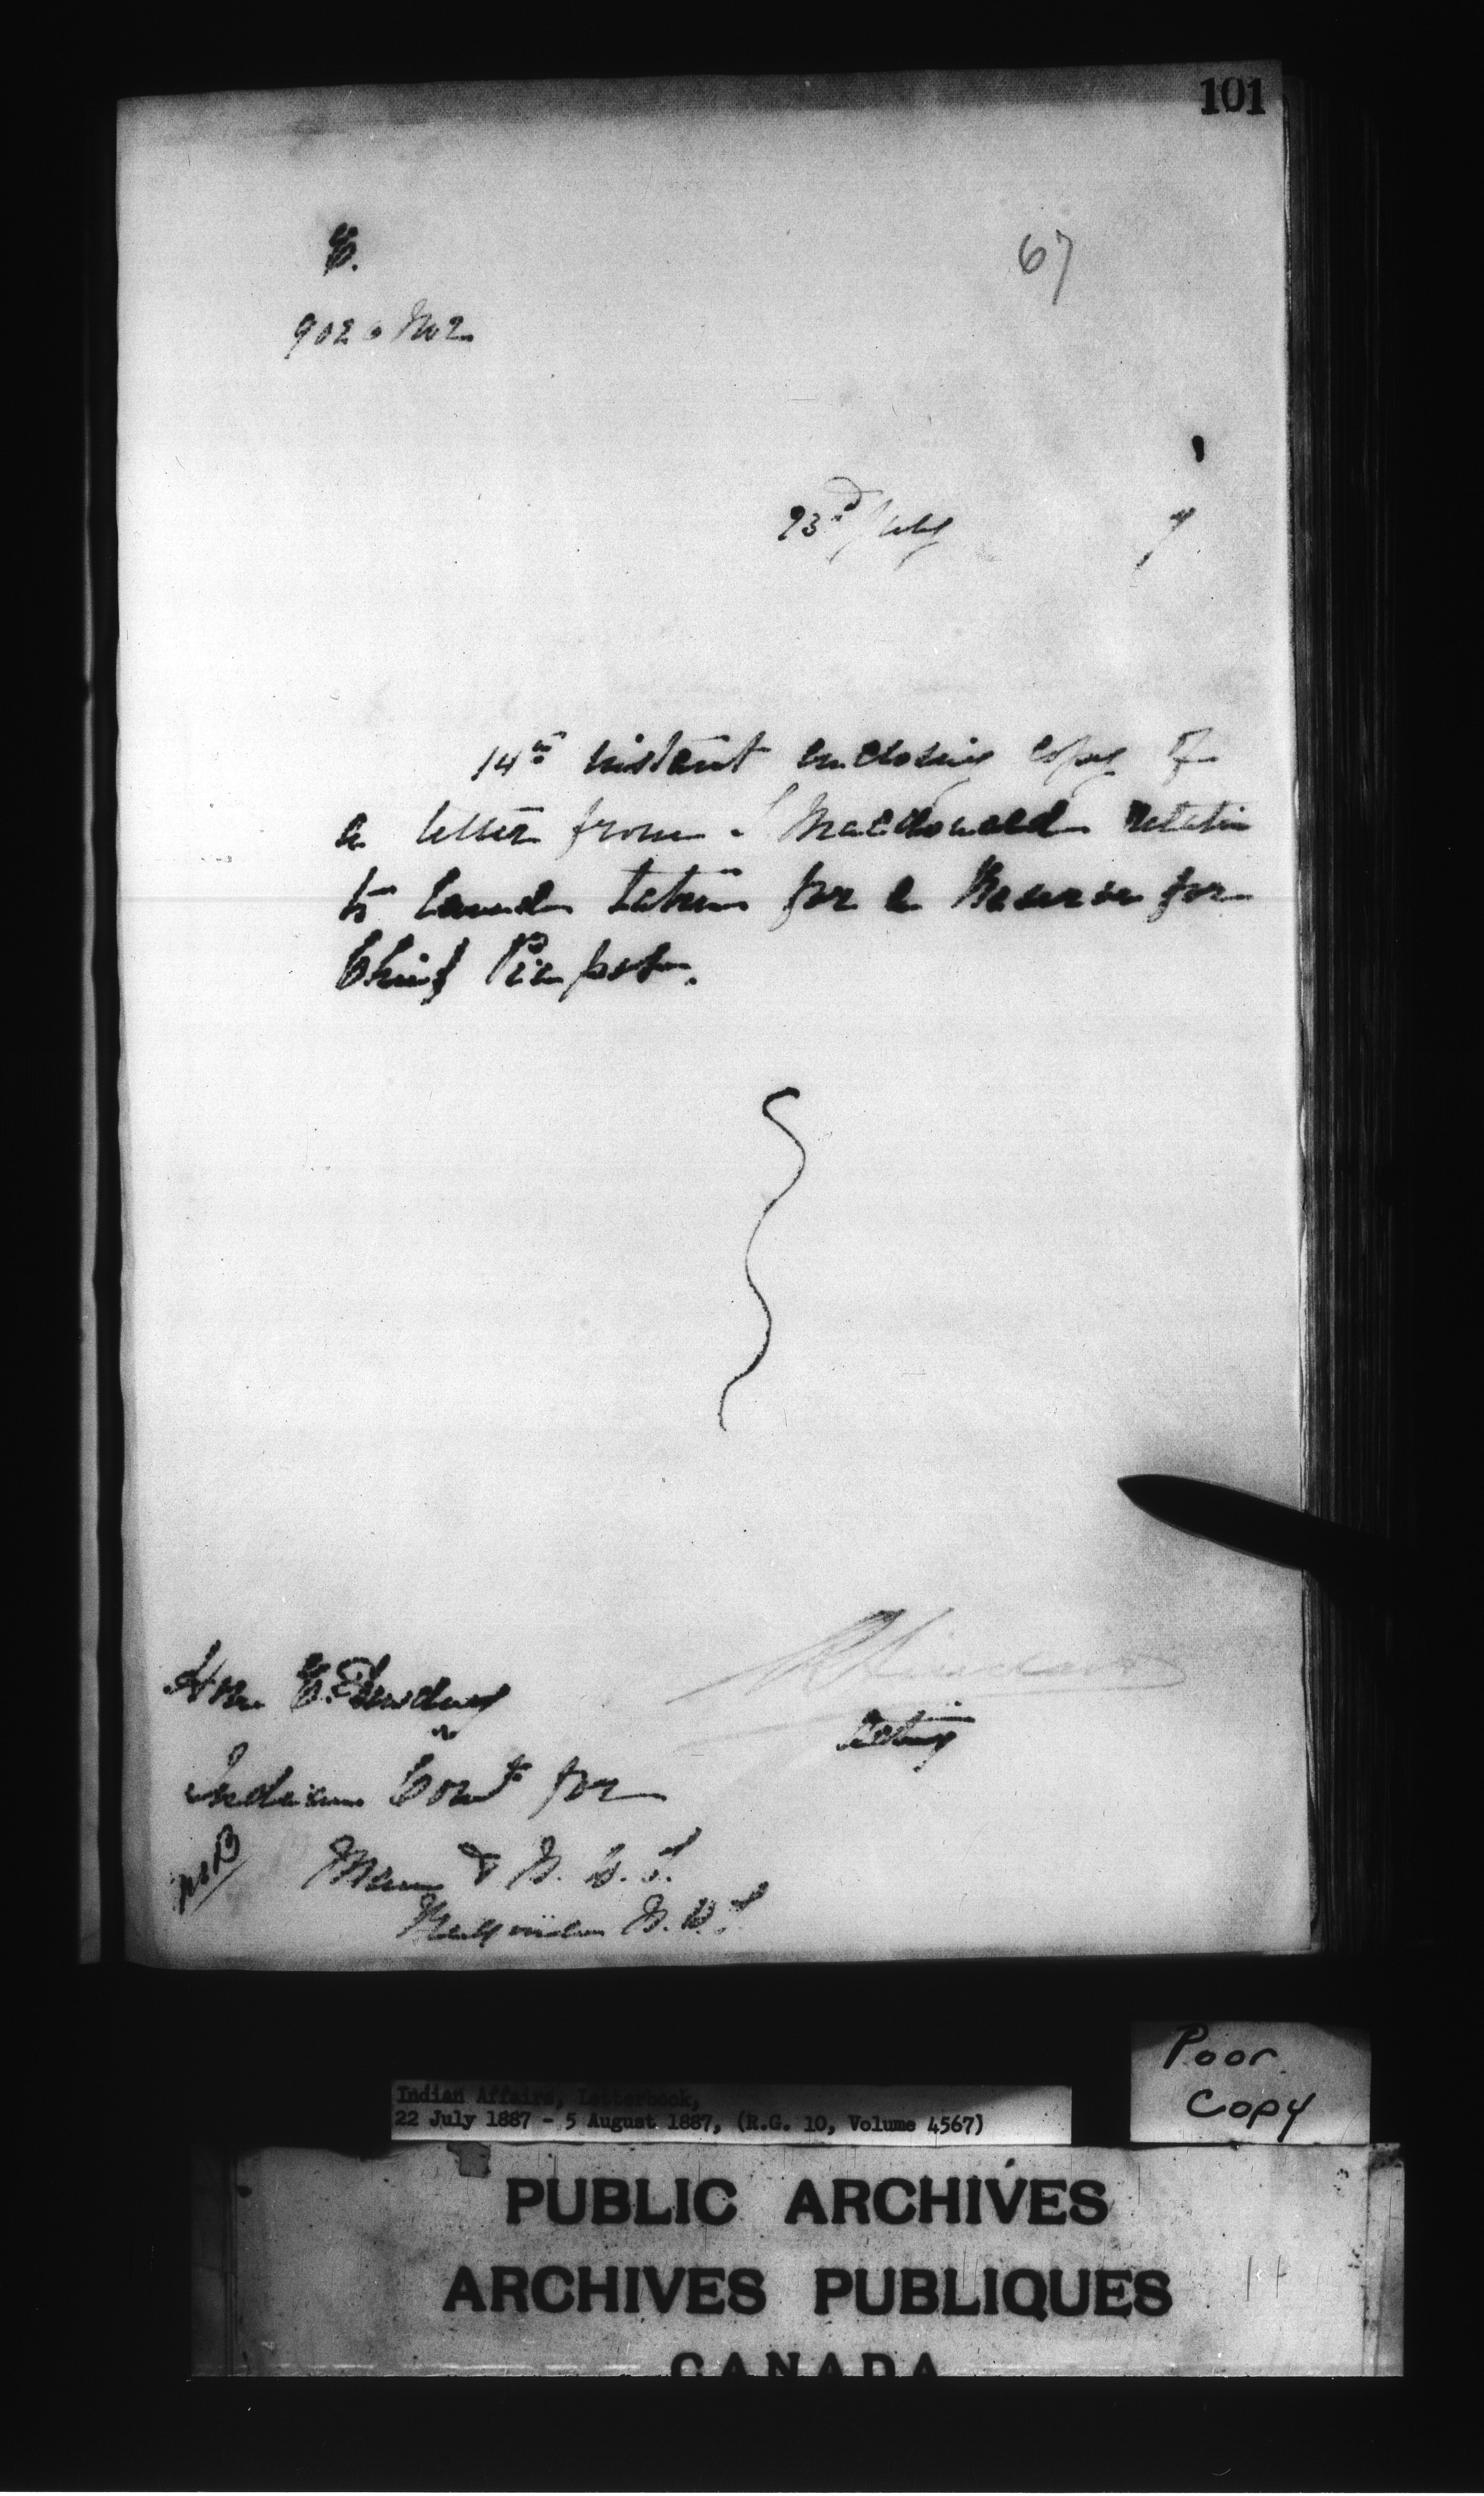 101
67
23rd July 7
14th instant enclosing copy of
a letter from Macdonald
to land taken for a Reserve for
Chief Piapot.
Hon. E. Dewdney
Acting
Indian for
Man & N. W. T.
N. W. T
Poor
Copy
Indian Affairs, Letterbook,
22 July 1887 - 5 August 1887, (R.G. 10, Volume 4567)
PUBLIC ARCHIVES
ARCHIVES PUBLIQUES
CANADA